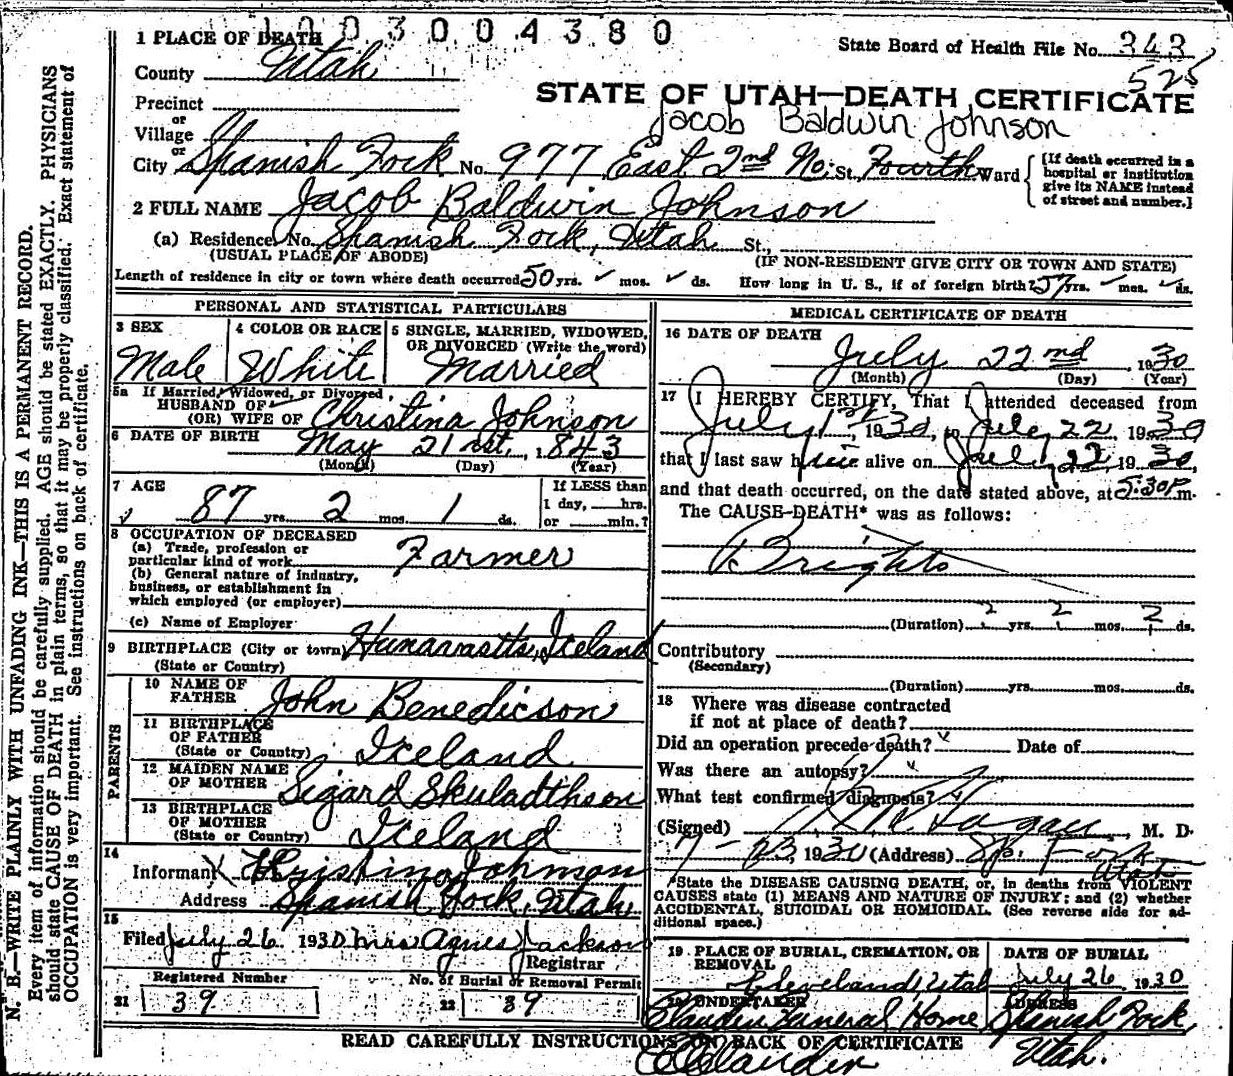 1003004380
1 PLACE OF DEATH
State Board of Health File No. 343
525
County Utah
STATE OF UTAH—DEATH CERTIFICATE
Precinct
or
Jacob Baldwin Johnson
Village
or
City Spanish Fork No. 977 East 2nd No. St., Fourth Ward
[If death occurred in a
hospital or institution
give its NAME instead
of street and number.]
2 FULL NAME Jacob Baldwin Johnson
(a) Residence. No. Spanish Fork, Utah St.,
(USUAL PLACE OF ABODE) (IF NON-RESIDENT GIVE CITY OR TOWN AND STATE)
Length of residence in city or town where death occurred 50 yrs. mos. ds. How long in U. S., if of foreign birth? 57 yrs. mos. ds.
PERSONAL AND STATISTICAL PARTICULARS
3 SEX
Male
4 COLOR OR RACE
White
5 SINGLE, MARRIED, WIDOWED,
OR DIVORCED (Write the word)
Married
5a If Married, Widowed, or Divorced,
HUSBAND OF
(OR) WIFE OF Christina Johnson
6 DATE OF BIRTH May 21st, 1843
(Month) (Day) (Year)
7 AGE
87 yrs. 2 mos. 1 ds.
If LESS than
1 day, hrs.
or min.?
8 OCCUPATION OF DECEASED
(a) Trade, profession or
particular kind of work Farmer
(b) General nature of industry,
business, or establishment in
which employed (or employer)
(c) Name of Employer
9 BIRTHPLACE (City or town) Iceland
(State or Country)
PARENTS
10 NAME OF
FATHER John Benedicson
11 BIRTHPLACE
OF FATHER
(State or Country) Iceland
12 MAIDEN NAME
OF MOTHER Sigard Skuladthson
13 BIRTHPLACE
OF MOTHER
(State or Country) Iceland
14
Informant X Christina Johnson
Address Spanish Fork, Utah
15
Filed July 26 1930 Mrs Agnes Jackson
Registrar
Registered Number
21 39
No. of Burial or Removal Permit
22 39
MEDICAL CERTIFICATE OF DEATH
16 DATE OF DEATH
July 22nd, 1930
(Month) (Day) (Year)
17 I HEREBY CERTIFY, That I attended deceased from
July 1st, 1930, to July 22, 1930
that I last saw him alive on July 22, 1930,
and that death occurred, on the date stated above, at 5:30P m.
The CAUSE DEATH* was as follows:
Brights
(Duration) 2 yrs. 2 mos. 2 ds.
Contributory
(Secondary)
(Duration) yrs. mos. ds.
18 Where was disease contracted
if not at place of death?
Did an operation precede death? Date of
Was there an autopsy?
What test confirmed diagnosis?
(Signed) Hagan, M. D.
7-23, 1930 (Address) Sp. Fork
Utah
*State the DISEASE CAUSING DEATH, or, in deaths from VIOLENT
CAUSES state (1) MEANS AND NATURE OF INJURY; and (2) whether
ACCIDENTAL, SUICIDAL OR HOMICIDAL. (See reverse side for ad-
ditional space.)
19 PLACE OF BURIAL, CREMATION, OR
REMOVAL
Cleveland, Utah
DATE OF BURIAL
July 26 1930
20 UNDERTAKER
Claudin Funeral Home
ADDRESS
Spanish Fork,
Utah.
READ CAREFULLY INSTRUCTIONS ON BACK OF CERTIFICATE
Claudin
N. B.—WRITE PLAINLY WITH UNFADING INK—THIS IS A PERMANENT RECORD.
Every item of information should be carefully supplied. AGE should be stated EXACTLY. PHYSICIANS
should state CAUSE OF DEATH in plain terms, so that it may be properly classified. Exact statement of
OCCUPATION is very important. See instructions on back of certificate.